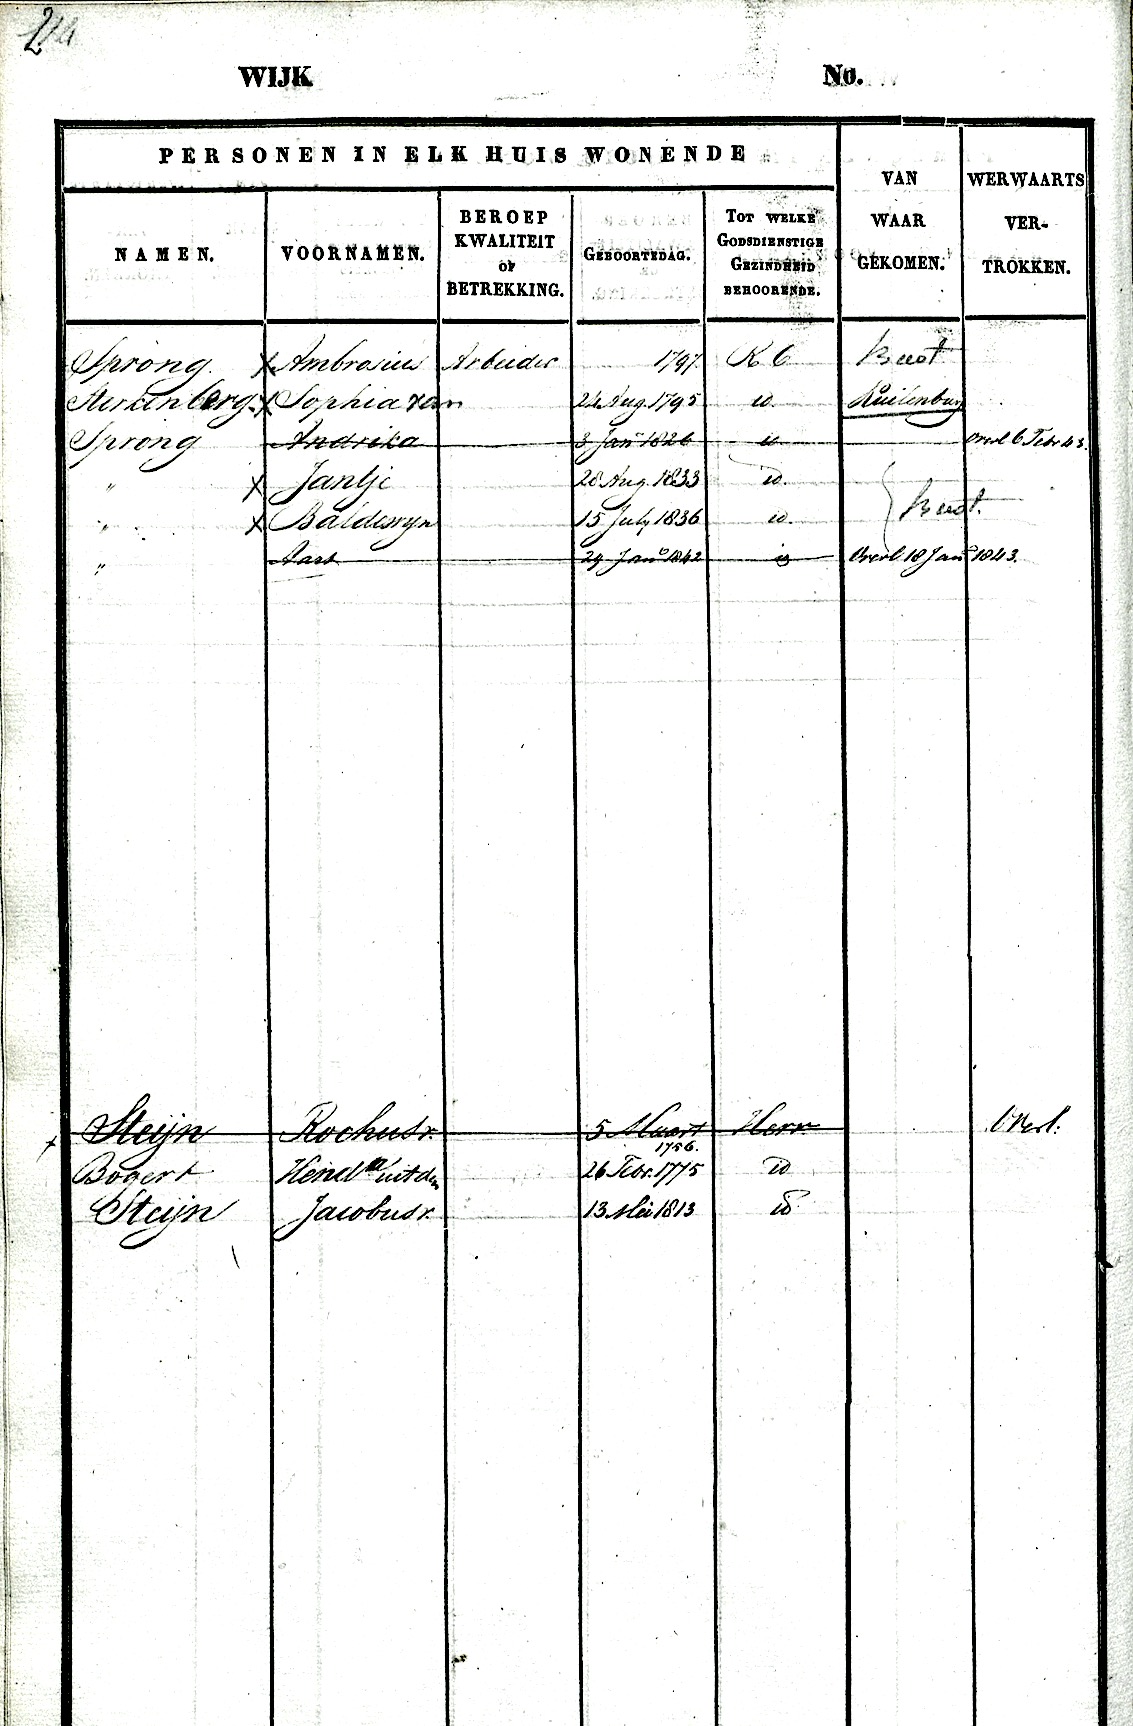 WIJK No.
PERSONEN IN ELK HUIS WONENDE
VAN WAAR GEKOMEN.
WERWAARTS VER- TROKKEN.
NAMEN.
VOORNAMEN.
BEROEP KWALITEIT OF BETREKKING.
GEBOORTEDAG.
TOT WELKE GODSDIENSTIGE GEZINDHEID BEHOORENDE.
Sprong. x Ambrosius Arbeider 1797. R C Beest
Sterkenberg x Sophia van 24 Aug. 1795 id. Kuilenburg
Sprong Andrika 3 Jan 1826 id overl 6 Febr 43.
" x Jantje 28 Aug. 1833 id.
" x Baldewyn 15 July 1836 id. Beest.
" Aart 29 Jan 1842 id Overl 18 Jan 1843.
x Steijn Rochus r. 5 Maart 1756. Herv Overl.
Bogert Hendka uit den 26 Febr. 1775 id
Steijn Jacobus r. 13 Mei 1813 id